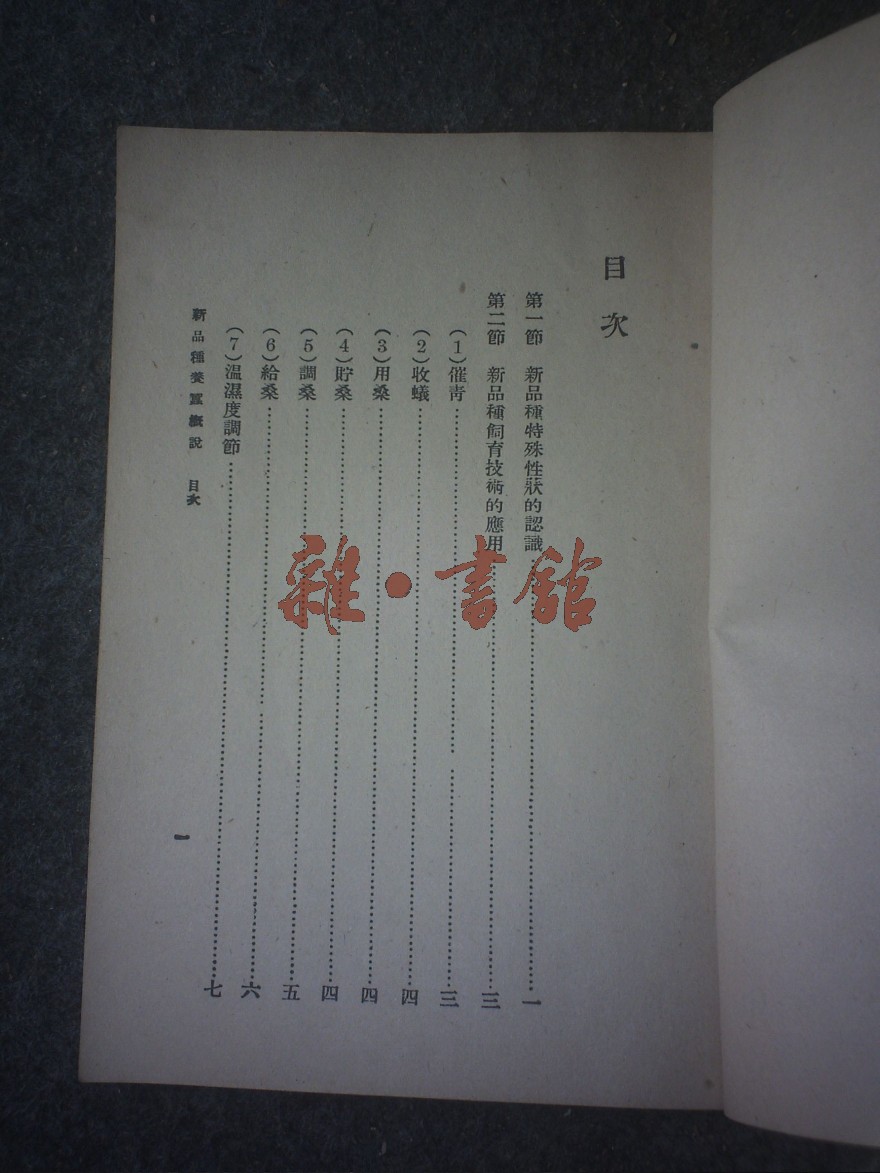 目次
第一節　新品種特殊性狀的認識……………一
第二節　新品種飼育技術的應用……………三
（1）催青……………三
（2）收蟻……………四
（3）用桑……………四
（4）貯桑……………四
（5）調桑……………五
（6）給桑……………六
（7）溫濕度調節……………七
新品種養蠶概說　目次
一
雜·書館